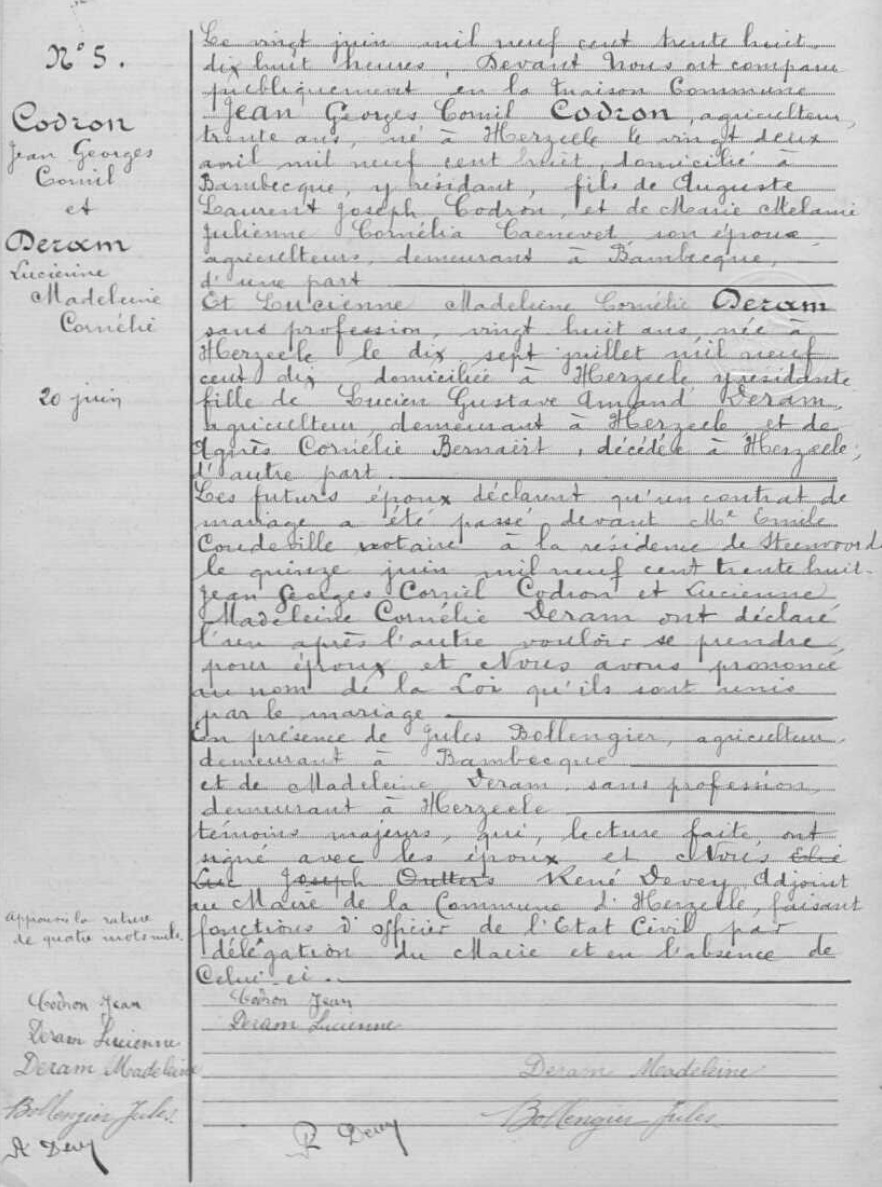 N° 5.
Codron
Jean Georges
Cornil
et
Deram
Lucienne
Madeleine
Cornélie
20 juin
Le vingt juin mil neuf cent trente huit
dix huit heures, Devant Nous ont comparu
publiquement en la Maison Commune
Jean Georges Cornil Codron, agriculteur,
trente ans, né à Herzeele le vingt deux
avril mil neuf cent huit, domicilié à
Bambecque, y résidant, fils de Auguste
Laurent Joseph Codron, et de Marie Melanie
Julienne Cornélia son épouse
agriculteurs, demeurant à Bambecque,
d'une part
Et Lucienne Madeleine Cornélie Deram
sans profession, vingt huit ans, née à
Herzeele le dix sept juillet mil neuf
cent dix domiciliée à Herzeele y résidante
fille de Lucien Gustave Amand Deram,
agriculteur, demeurant à Herzeele, et de
Agnès Cornélie Bernaërt, décédée à Herzeele;
d'autre part
Les futurs époux déclarent qu'un contrat de
mariage a été passé devant Me Emile
Coudeville notaire à la résidence de Steenvoorde
le quinze juin mil neuf cent trente huit.
Jean Georges Cornil Codron et Lucienne
Madeleine Cornélie Deram ont déclaré
l'un après l'autre vouloir se prendre
pour époux et Nous avons prononcé
au nom de la Loi qu'ils sont unis
par le mariage
En présence de Jules Bollengier, agriculteur,
demeurant à Bambecque
et de Madeleine Deram, sans profession,
demeurant à Herzeele
témoins majeurs, qui, lecture faite, ont
signé avec les époux et Nous Elie
Luc Joseph Outters René Devey Adjoint
au Maire de la Commune d'Herzeele, faisant
fonctions d'officier de l'Etat Civil par
délégation du Maire et en l'absence de
Celui-ci.
Approuvé la rature
de quatre mots nuls.
Codron Jean
Deram Lucienne
Deram Madeleine
Bollengier Jules
R Devey
Codron Jean
Deram Lucienne
Deram Madeleine
Bollengier Jules
R Devey